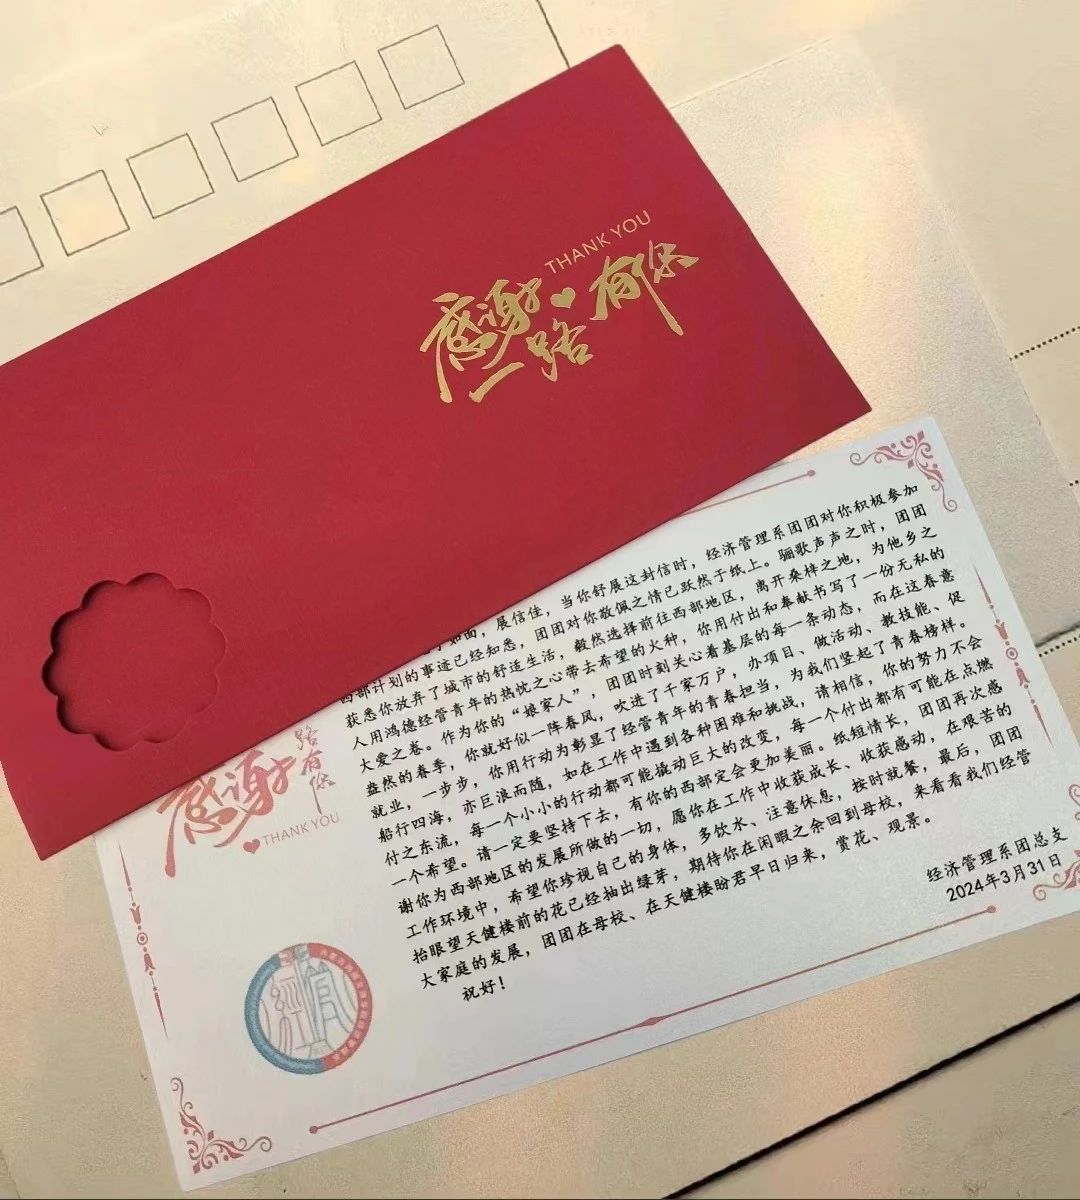 THANK YOU
感谢
一路
有你
如面，展信佳，当你舒展这封信时，经济管理系团团对你积极参加
西部计划的事迹已经知悉，团团对你敬佩之情已跃然于纸上。骊歌声声之时，团团
获悉你放弃了城市的舒适生活，毅然选择前往西部地区，离开桑梓之地，为他乡之
人用鸿德经管青年的热忱之心带去希望的火种，你用付出和奉献书写了一份无私的
大爱之卷。作为你的“娘家人”，团团时刻关心着基层的每一条动态，而在这春意
盎然的春季，你就好似一阵春风，吹进了千家万户，办项目、做活动、教技能、促
就业，一步步，你用行动为彰显了经管青年的青春担当，为我们竖起了青春榜样。
船行四海，亦巨浪而随，如在工作中遇到各种困难和挑战，请相信，你的努力不会
付之东流，每一个小小的行动都可能撬动巨大的改变，每一个付出都有可能在点燃
一个希望。请一定要坚持下去，有你的西部定会更加美丽。纸短情长，团团再次感
谢你为西部地区的发展所做的一切，愿你在工作中收获成长、收获感动，在艰苦的
工作环境中，希望你珍视自己的身体，多饮水、注意休息，按时就餐，最后，团团
抬眼望天健楼前的花已经抽出绿芽，期待你在闲暇之余回到母校，来看看我们经管
大家庭的发展，团团在母校、在天健楼盼君早日归来，赏花、观景。
祝好！
经济管理系团总支
2024年3月31日
感谢
一路
有你
THANK YOU
经管